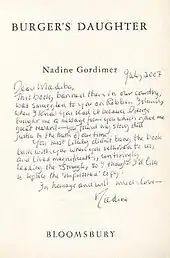 BURGER'S DAUGHTER
Nadine Gordimer
July, 2007
Dear Madiba,
This book, banned then in our country,
was smuggled to you on Robben Island,
when I knew you read it because George
brought me a message from you which gave me
great reward — you found my story did
justice to the truth of our time.
You most likely didn't have the book
back with you when you returned to us,
and lives magnificently, unflinchingly
leading the Struggle, so I thought I'd like
to replace the 'imprisoned' copy.
In homage and with much love —
Nadine
BLOOMSBURY